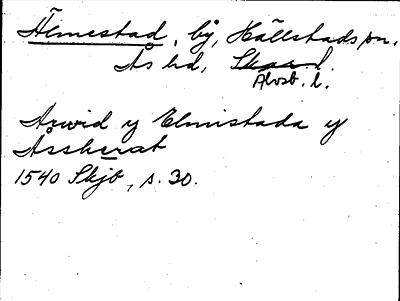 Älmestad, by, Hällstads sn,
Ås hd, Skar. l.
Älvsb. l.
Arvid y Elmistada y
Åsshærat
1540 Skjb, s. 30.